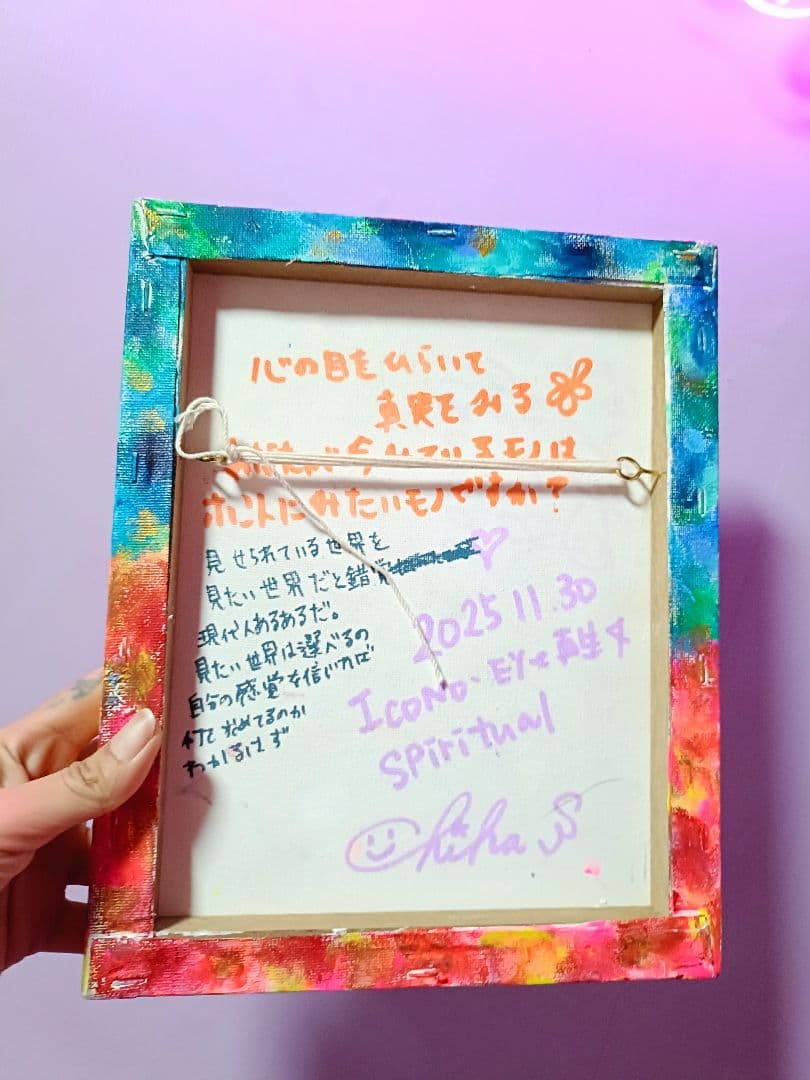 心の目をひらいて
真実をみる
あなたが今みているモノは
ホントにみたいモノですか？
見せられている世界を
見たい世界だと錯覚
現代人あるあるだ。
見たい世界は選べるの
自分の感覚を信じれば
何を求めてるのか
わかるはず
2025 11.30
ICONO・EYE 真生
Spiritual
Chika S